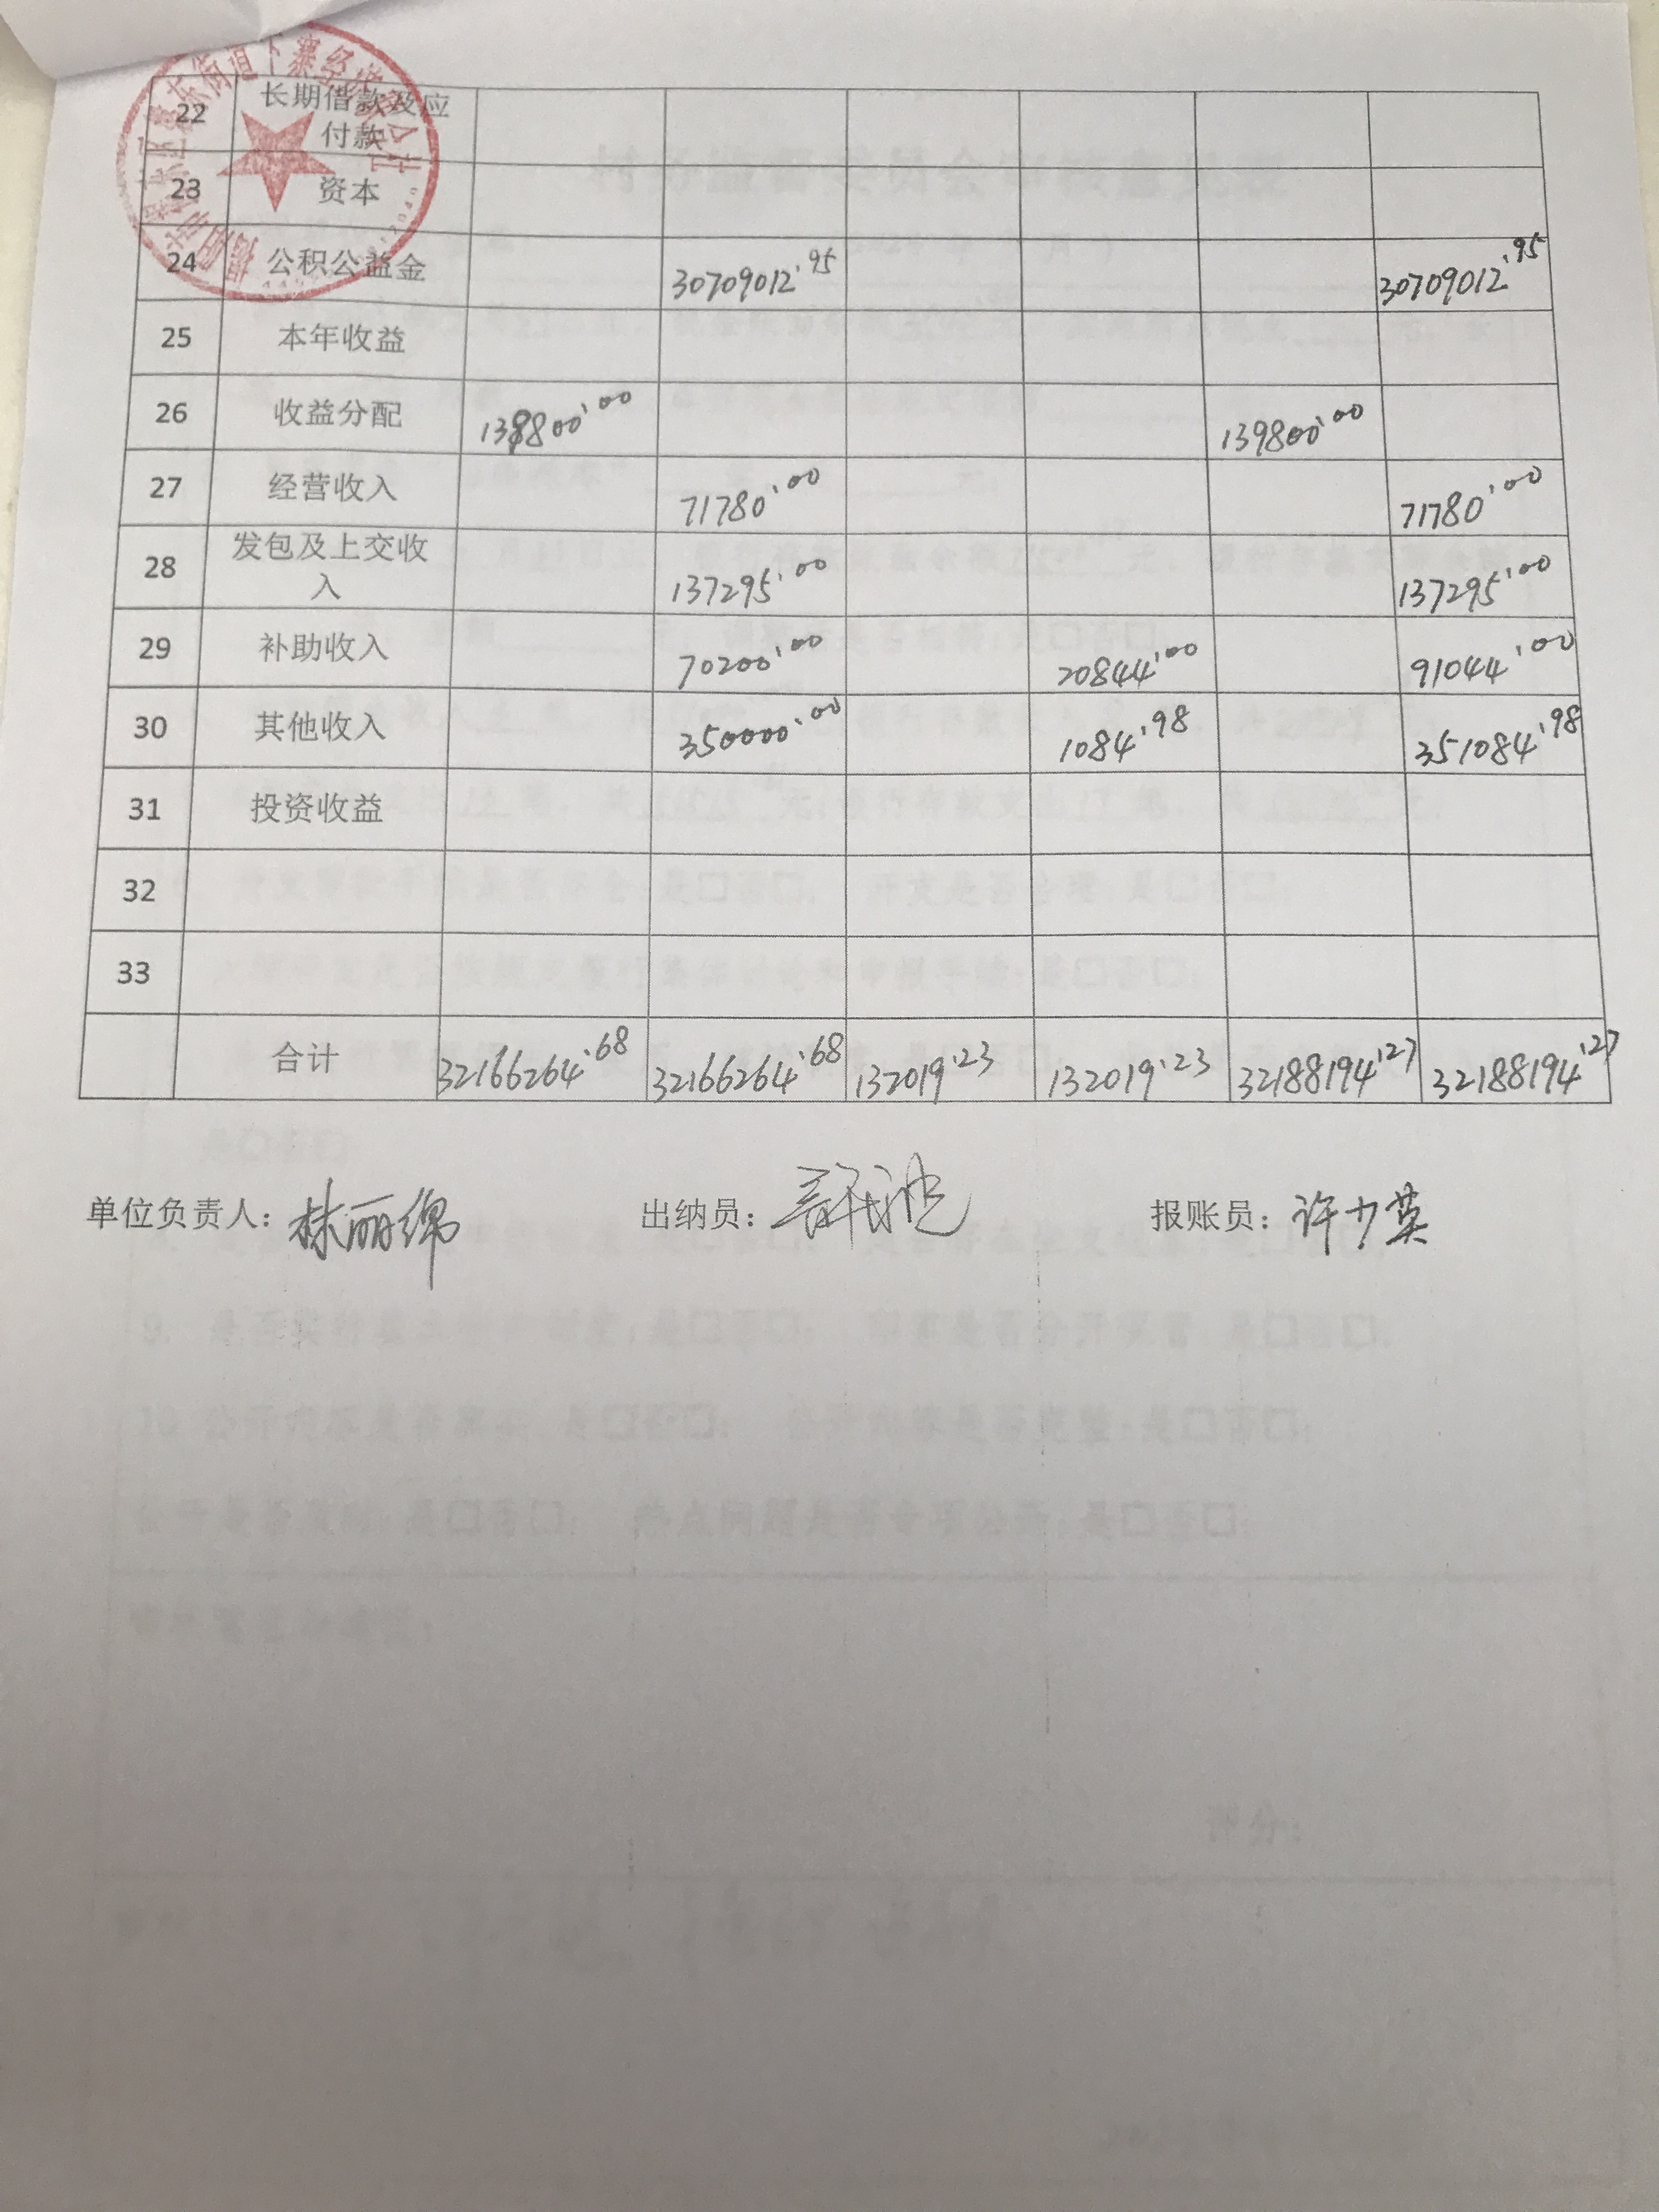 22 长期借款及应
付款
23 资本
24 公积公益金 30709012.95 30709012.95
25 本年收益
26 收益分配 139800.00 139800.00
27 经营收入 71780.00 71780.00
28 发包及上交收
入 137295.00 137295.00
29 补助收入 70200.00 20844.00 91044.00
30 其他收入 350000.00 1084.98 351084.98
31 投资收益
32
33
合计 32166264.68 32166264.68 132019.23 132019.23 32188194.27 32188194.27
单位负责人: 林丽绵 出纳员: 报账员: 许少英